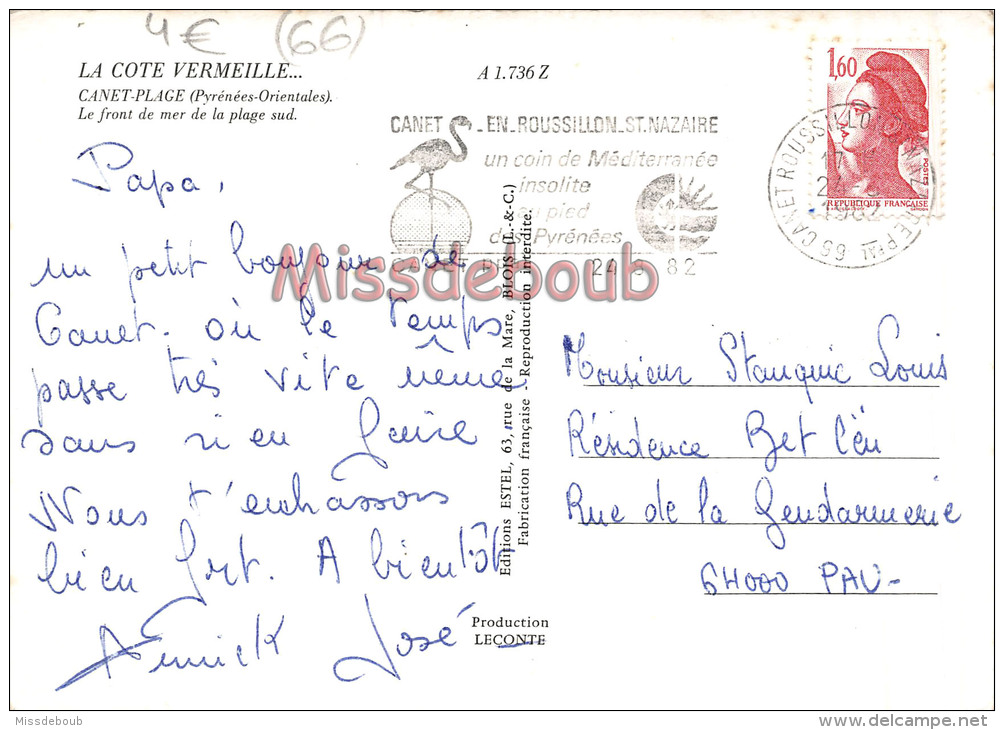 4€ (66)
LA COTE VERMEILLE...
CANET-PLAGE (Pyrénées-Orientales).
Le front de mer de la plage sud.
A 1.736 Z
CANET _EN_ROUSSILLON_ST.NAZAIRE
un coin de Méditerranée
insolite
au pied
des Pyrénées
24 82
1,60
POSTES
REPUBLIQUE FRANÇAISE
CANET ROUSSILLON
66
17
1982
Missdeboub
Papa,
un petit bonjour de
Canet. où le temps
passe très vite même
sans rien faire
Nous t'embrassons
bien fort. A bientôt
Annick José
Editions ESTEL, 63, rue de la Mare, BLOIS (L.-&-C.)
Fabrication française - Reproduction interdite.
Production
LECONTE
Monsieur Stanquic Louis
Résidence Bet Cèu
Rue de la Gendarmerie
64000 PAU-
Missdeboub
www.delcampe.net